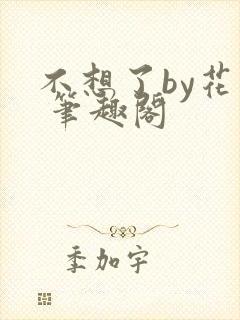 不想了by花
笔趣阁
季加宇